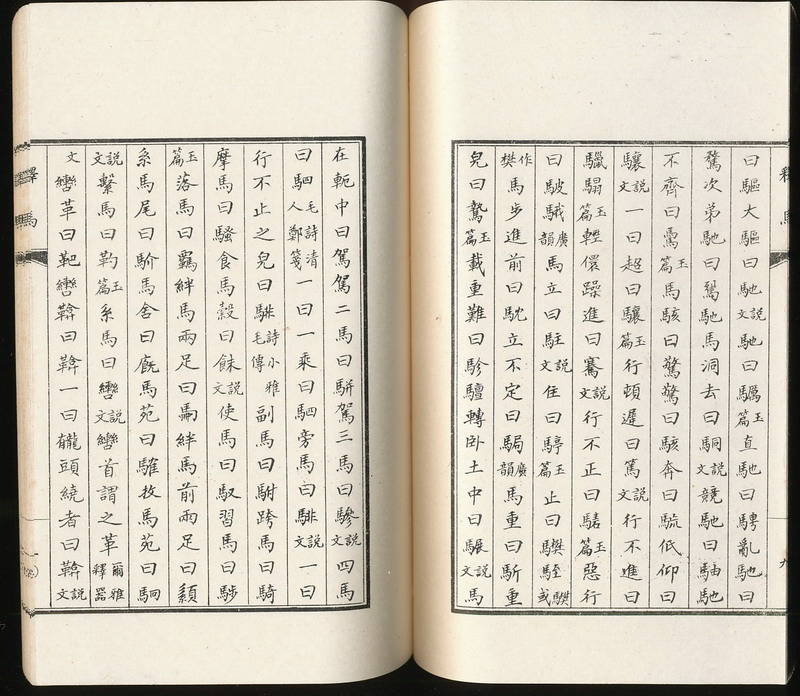 釋馬
曰驅大驅曰馳說文馳曰騳玉篇直馳曰騁亂馳曰
騖次弟馳曰䮄馳馬洞去曰駧說文競馳曰䮆馳
不齊曰䮇玉篇馬駭曰驚驚曰駭奔曰䮎低仰曰
驤說文一曰超曰驤玉篇行頓遲曰篤說文行不進曰
䮫玉篇輕儇躁進曰騫說文行不正曰玉篇惡行
曰駊騀廣韻馬立曰駐說文住曰玉篇止曰或作
樊馬步進前曰馾立不定曰駶廣韻馬重曰重
皃曰騺玉篇載重難曰駗驙轉臥土中曰䮗說文馬
在軛中曰駕駕二馬曰駢駕三馬曰驂說文四馬
曰駟毛詩清人鄭箋一曰一乘曰駟旁馬曰騑說文一曰
行不止之皃曰騑詩小雅毛傳副馬曰駙跨馬曰騎
摩馬曰騷食馬穀曰餗說文使馬曰馭習馬曰
玉篇落馬曰羈絆馬兩足曰絆馬前兩足曰
系馬尾曰馬舍曰廄馬苑曰牧馬苑曰駉
說文繫馬曰靮玉篇系馬曰轡說文轡首謂之革爾雅釋器
文轡革曰靶轡鞥曰鞥一曰龓頭繞者曰鞥說文
釋馬